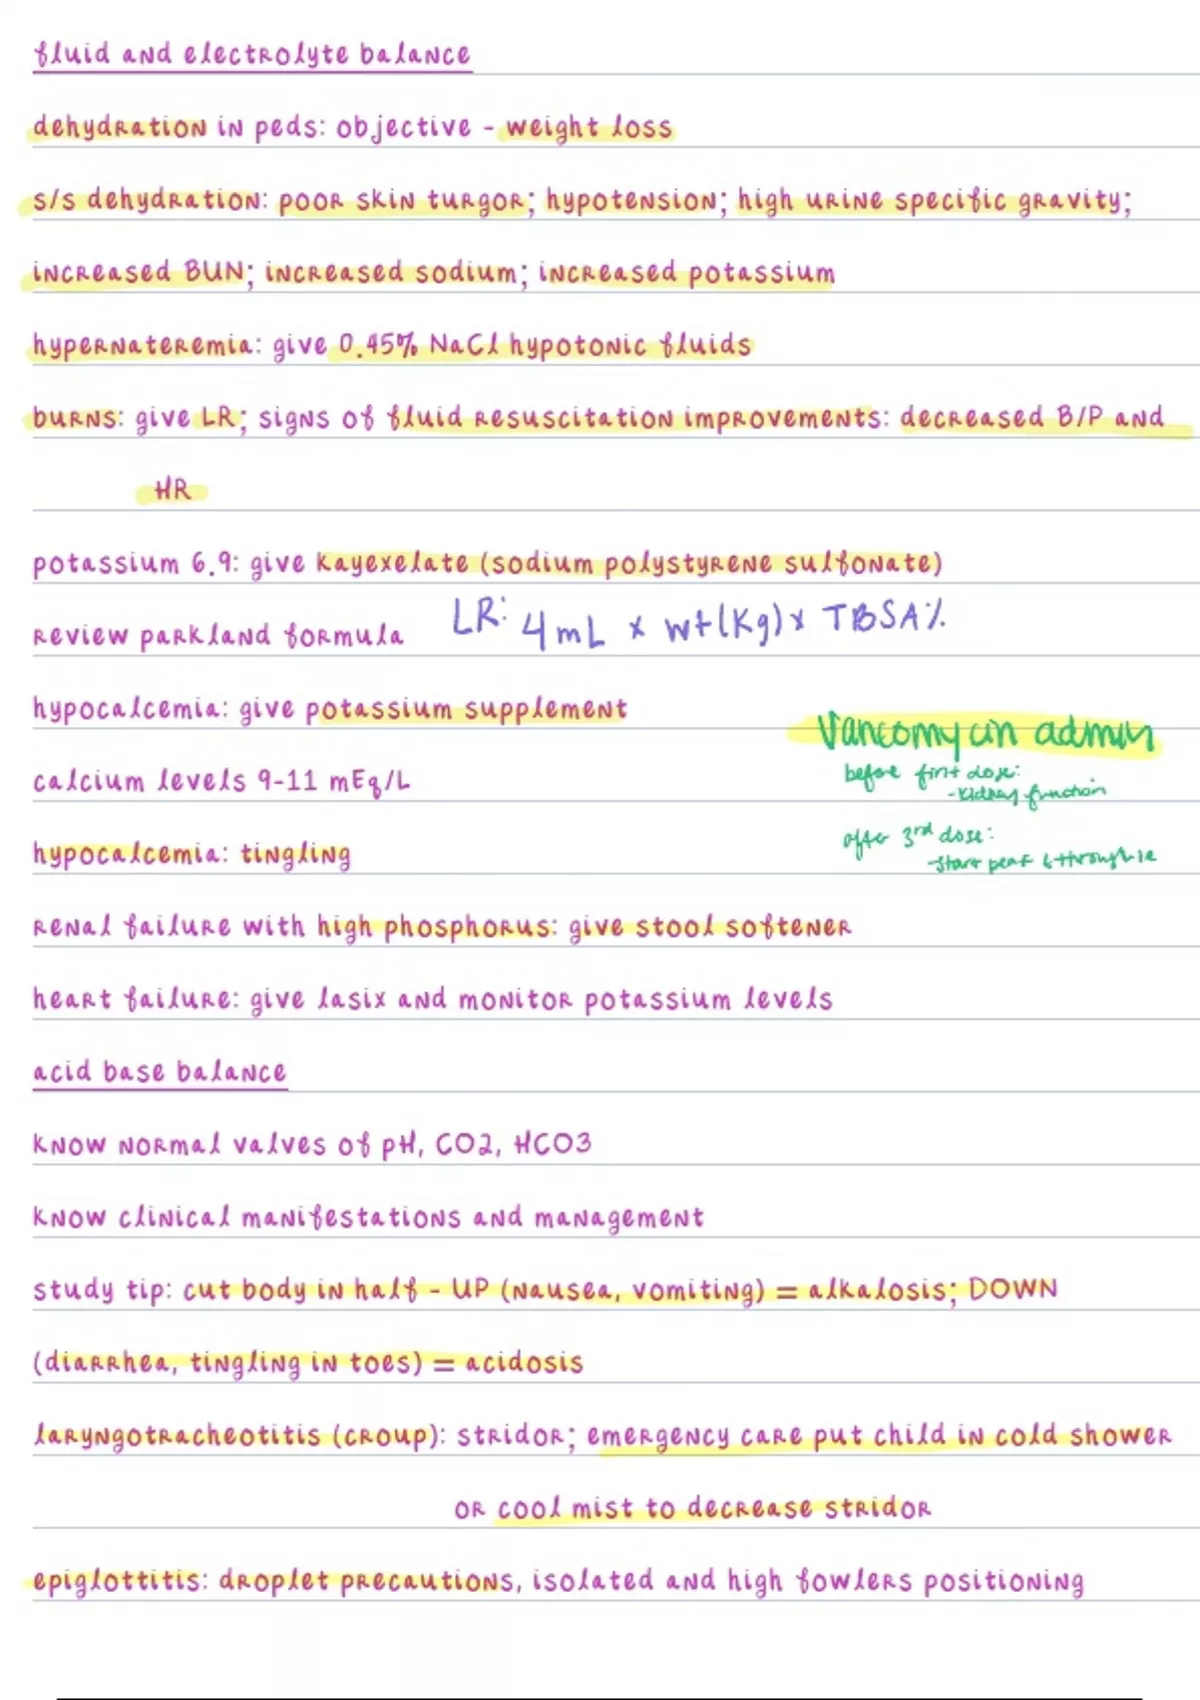 fluid and electrolyte balance
dehydration in peds: objective - weight loss
s/s dehydration: poor skin turgor; hypotension; high urine specific gravity;
increased BUN; increased sodium; increased potassium
hypernateremia: give 0.45% NaCl hypotonic fluids
burns: give LR; signs of fluid resuscitation improvements: decreased B/P and
HR
potassium 6.9: give kayexelate (sodium polystyrene sulfonate)
review parkland formula LR: 4mL x wt(Kg) x TBSA%
hypocalcemia: give potassium supplement
Vancomycin admin
calcium levels 9-11 mEq/L
before first dose:
-Kidney function
hypocalcemia: tingling
after 3rd dose:
-start peak &
renal failure with high phosphorus: give stool softener
heart failure: give lasix and monitor potassium levels
acid base balance
know normal valves of pH, CO2, HCO3
know clinical manifestations and management
study tip: cut body in half - UP (nausea, vomiting) = alkalosis; DOWN
(diarrhea, tingling in toes) = acidosis
laryngotracheotitis (croup): stridor; emergency care put child in cold shower
or cool mist to decrease stridor
epiglottitis: droplet precautions, isolated and high fowlers positioning